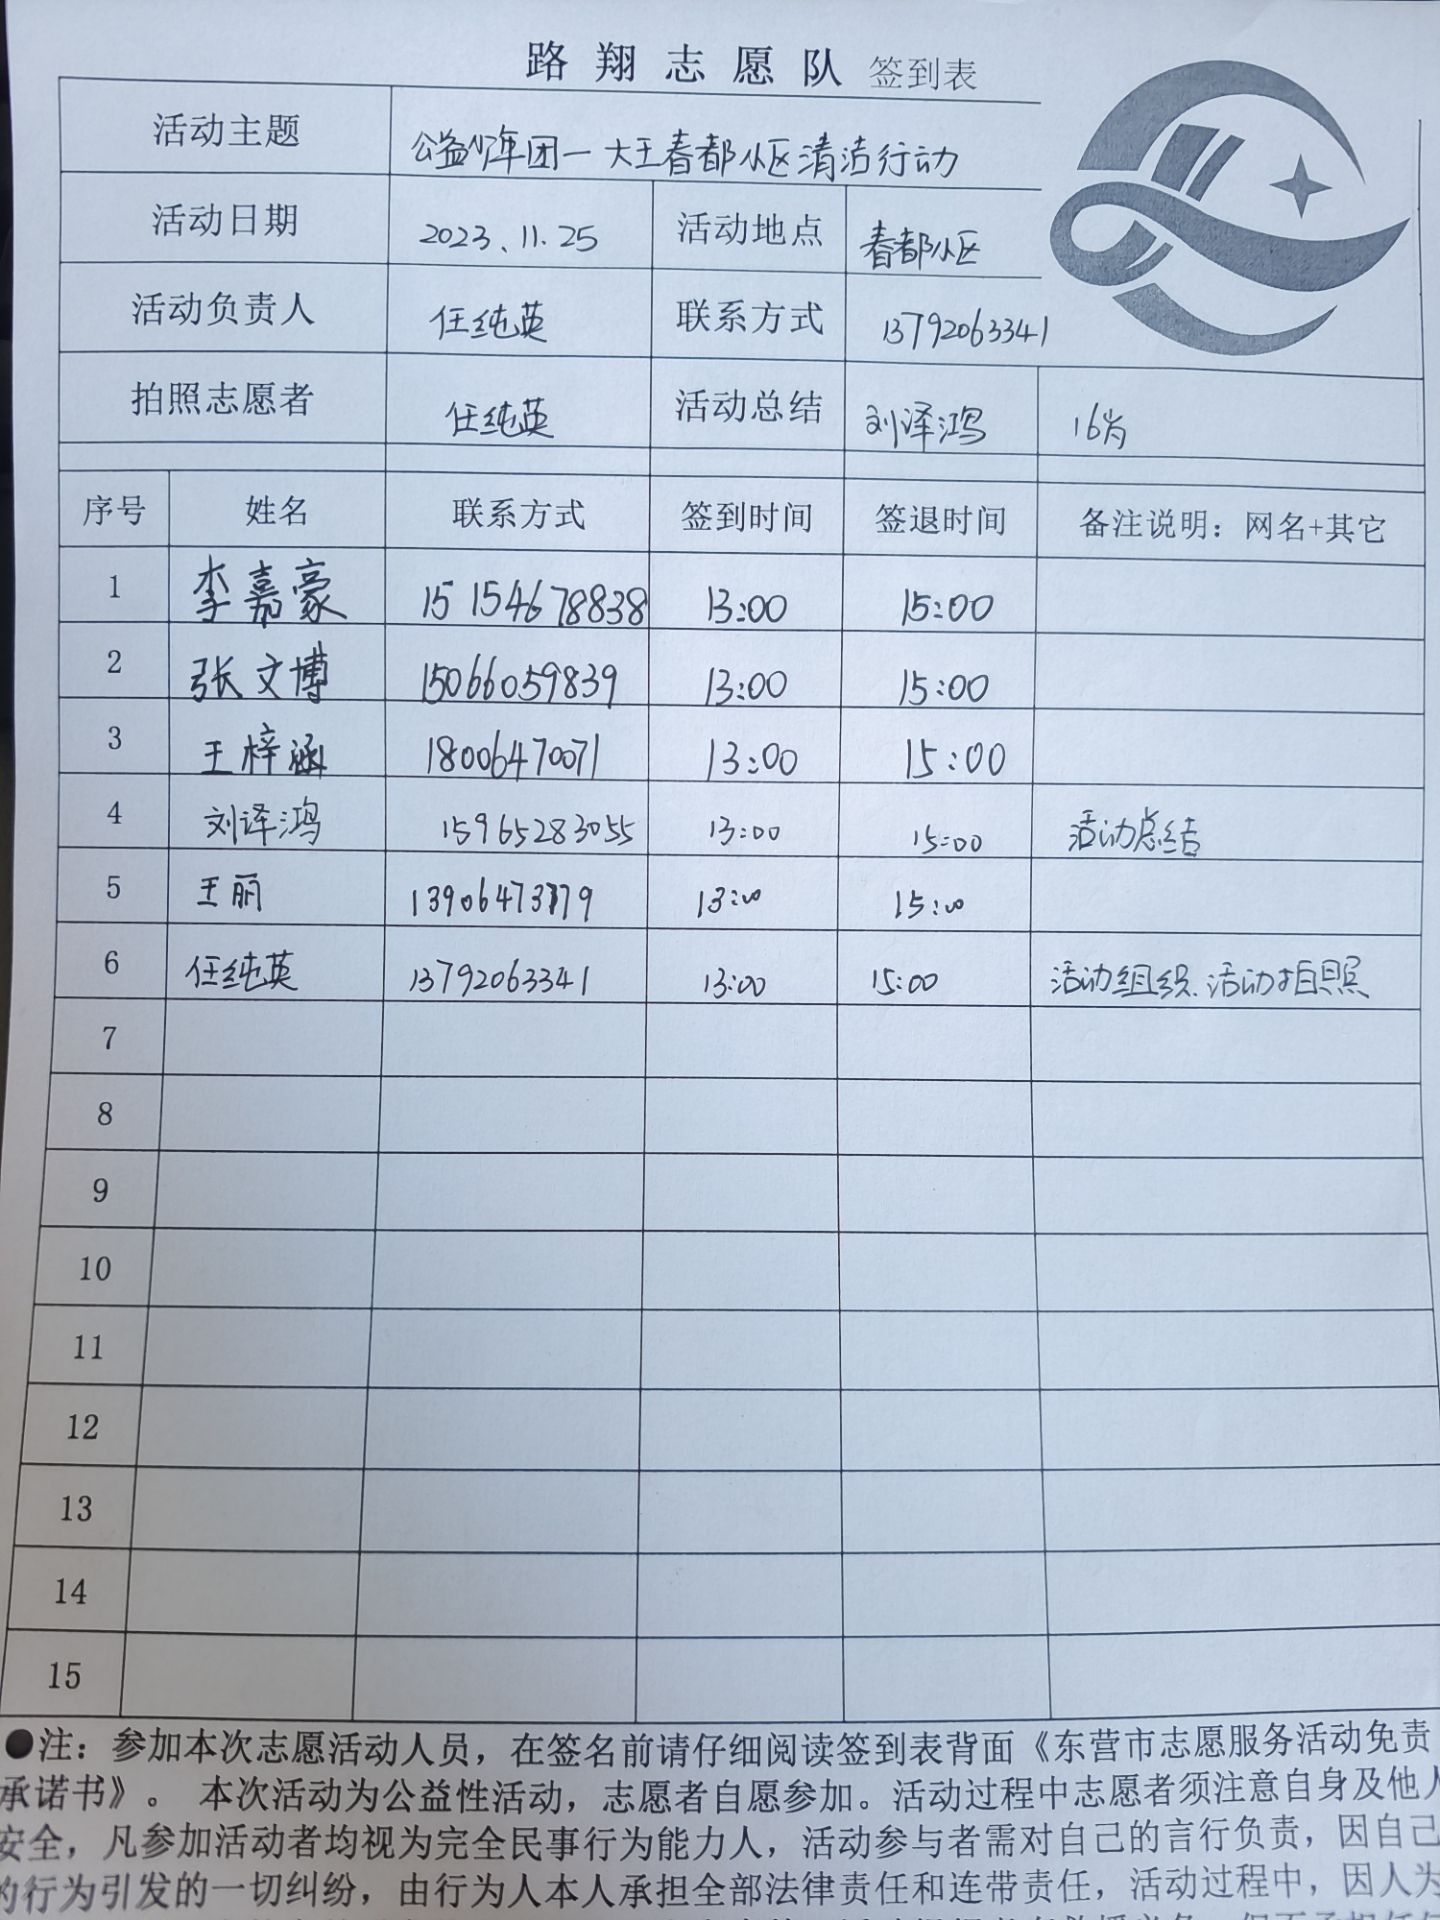 路翔志愿队 签到表
活动主题 公益少年团一大王春都小区清洁行动
活动日期 2023、11.25 活动地点 春都小区
活动负责人 任纯英 联系方式 13792063341
拍照志愿者 任纯英 活动总结 刘泽鸿 16岁
序号 姓名 联系方式 签到时间 签退时间 备注说明：网名+其它
1 李嘉豪 15154678838 13:00 15:00
2 张文博 15066059839 13:00 15:00
3 王梓涵 18006470071 13:00 15:00
4 刘译鸿 15965283055 13:00 15:00 活动总结
5 王丽 13:00 15:00
6 任纯英 13792063341 13:00 15:00 活动组织.活动拍照
7
8
9
10
11
12
13
14
15
●注：参加本次志愿活动人员，在签名前请仔细阅读签到表背面《东营市志愿服务活动免责
承诺书》。 本次活动为公益性活动，志愿者自愿参加。活动过程中志愿者须注意自身及他人
安全，凡参加活动者均视为完全民事行为能力人，活动参与者需对自己的言行负责，因自己
的行为引发的一切纠纷，由行为人本人承担全部法律责任和连带责任，活动过程中，因人为